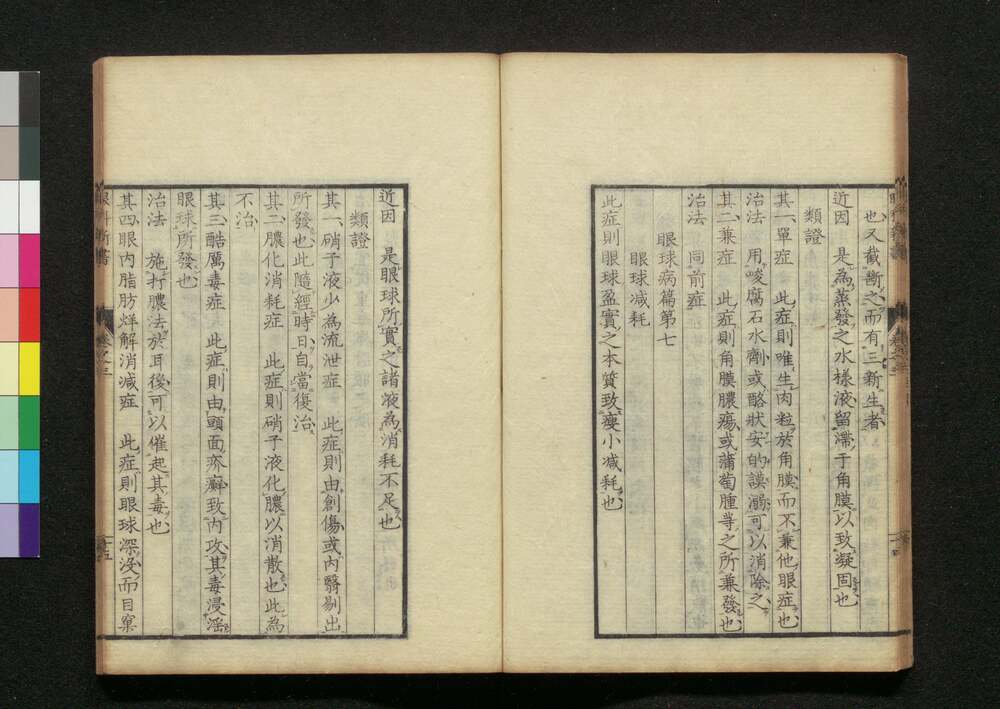 也又截斷之而有三新生者
近因　是為蒸發之水樣液留滯于角膜以致凝固也
類證
其一單症　此症則唯生肉粒於角膜而不兼他眼症也
治法　用唆腐石水劑或酪狀安的謨溺可以消除之
其二兼症　此症則角膜膿瘍或蒲萄腫等之所兼發也
治法　同前症
眼球病篇第七
眼球減耗
此症則眼球盈實之本質致瘦小減耗也
近因　是眼球所實之諸液為消耗不足也
類證
其一硝子液少為流泄症　此症則由創傷或內翳剔出
所發也此隨經時日自當復治
其二膿化消耗症　此症則硝子液化膿以消散也此為
不治
其三酷厲毒症　此症則由頭面疥癬致內攻其毒浸淫
眼球所發也
治法　施打膿法於耳後可以催起其毒也
其四眼內脂肪烊解消減症　此症則眼球深沒而目窠
眼科新書
卷之三
十五